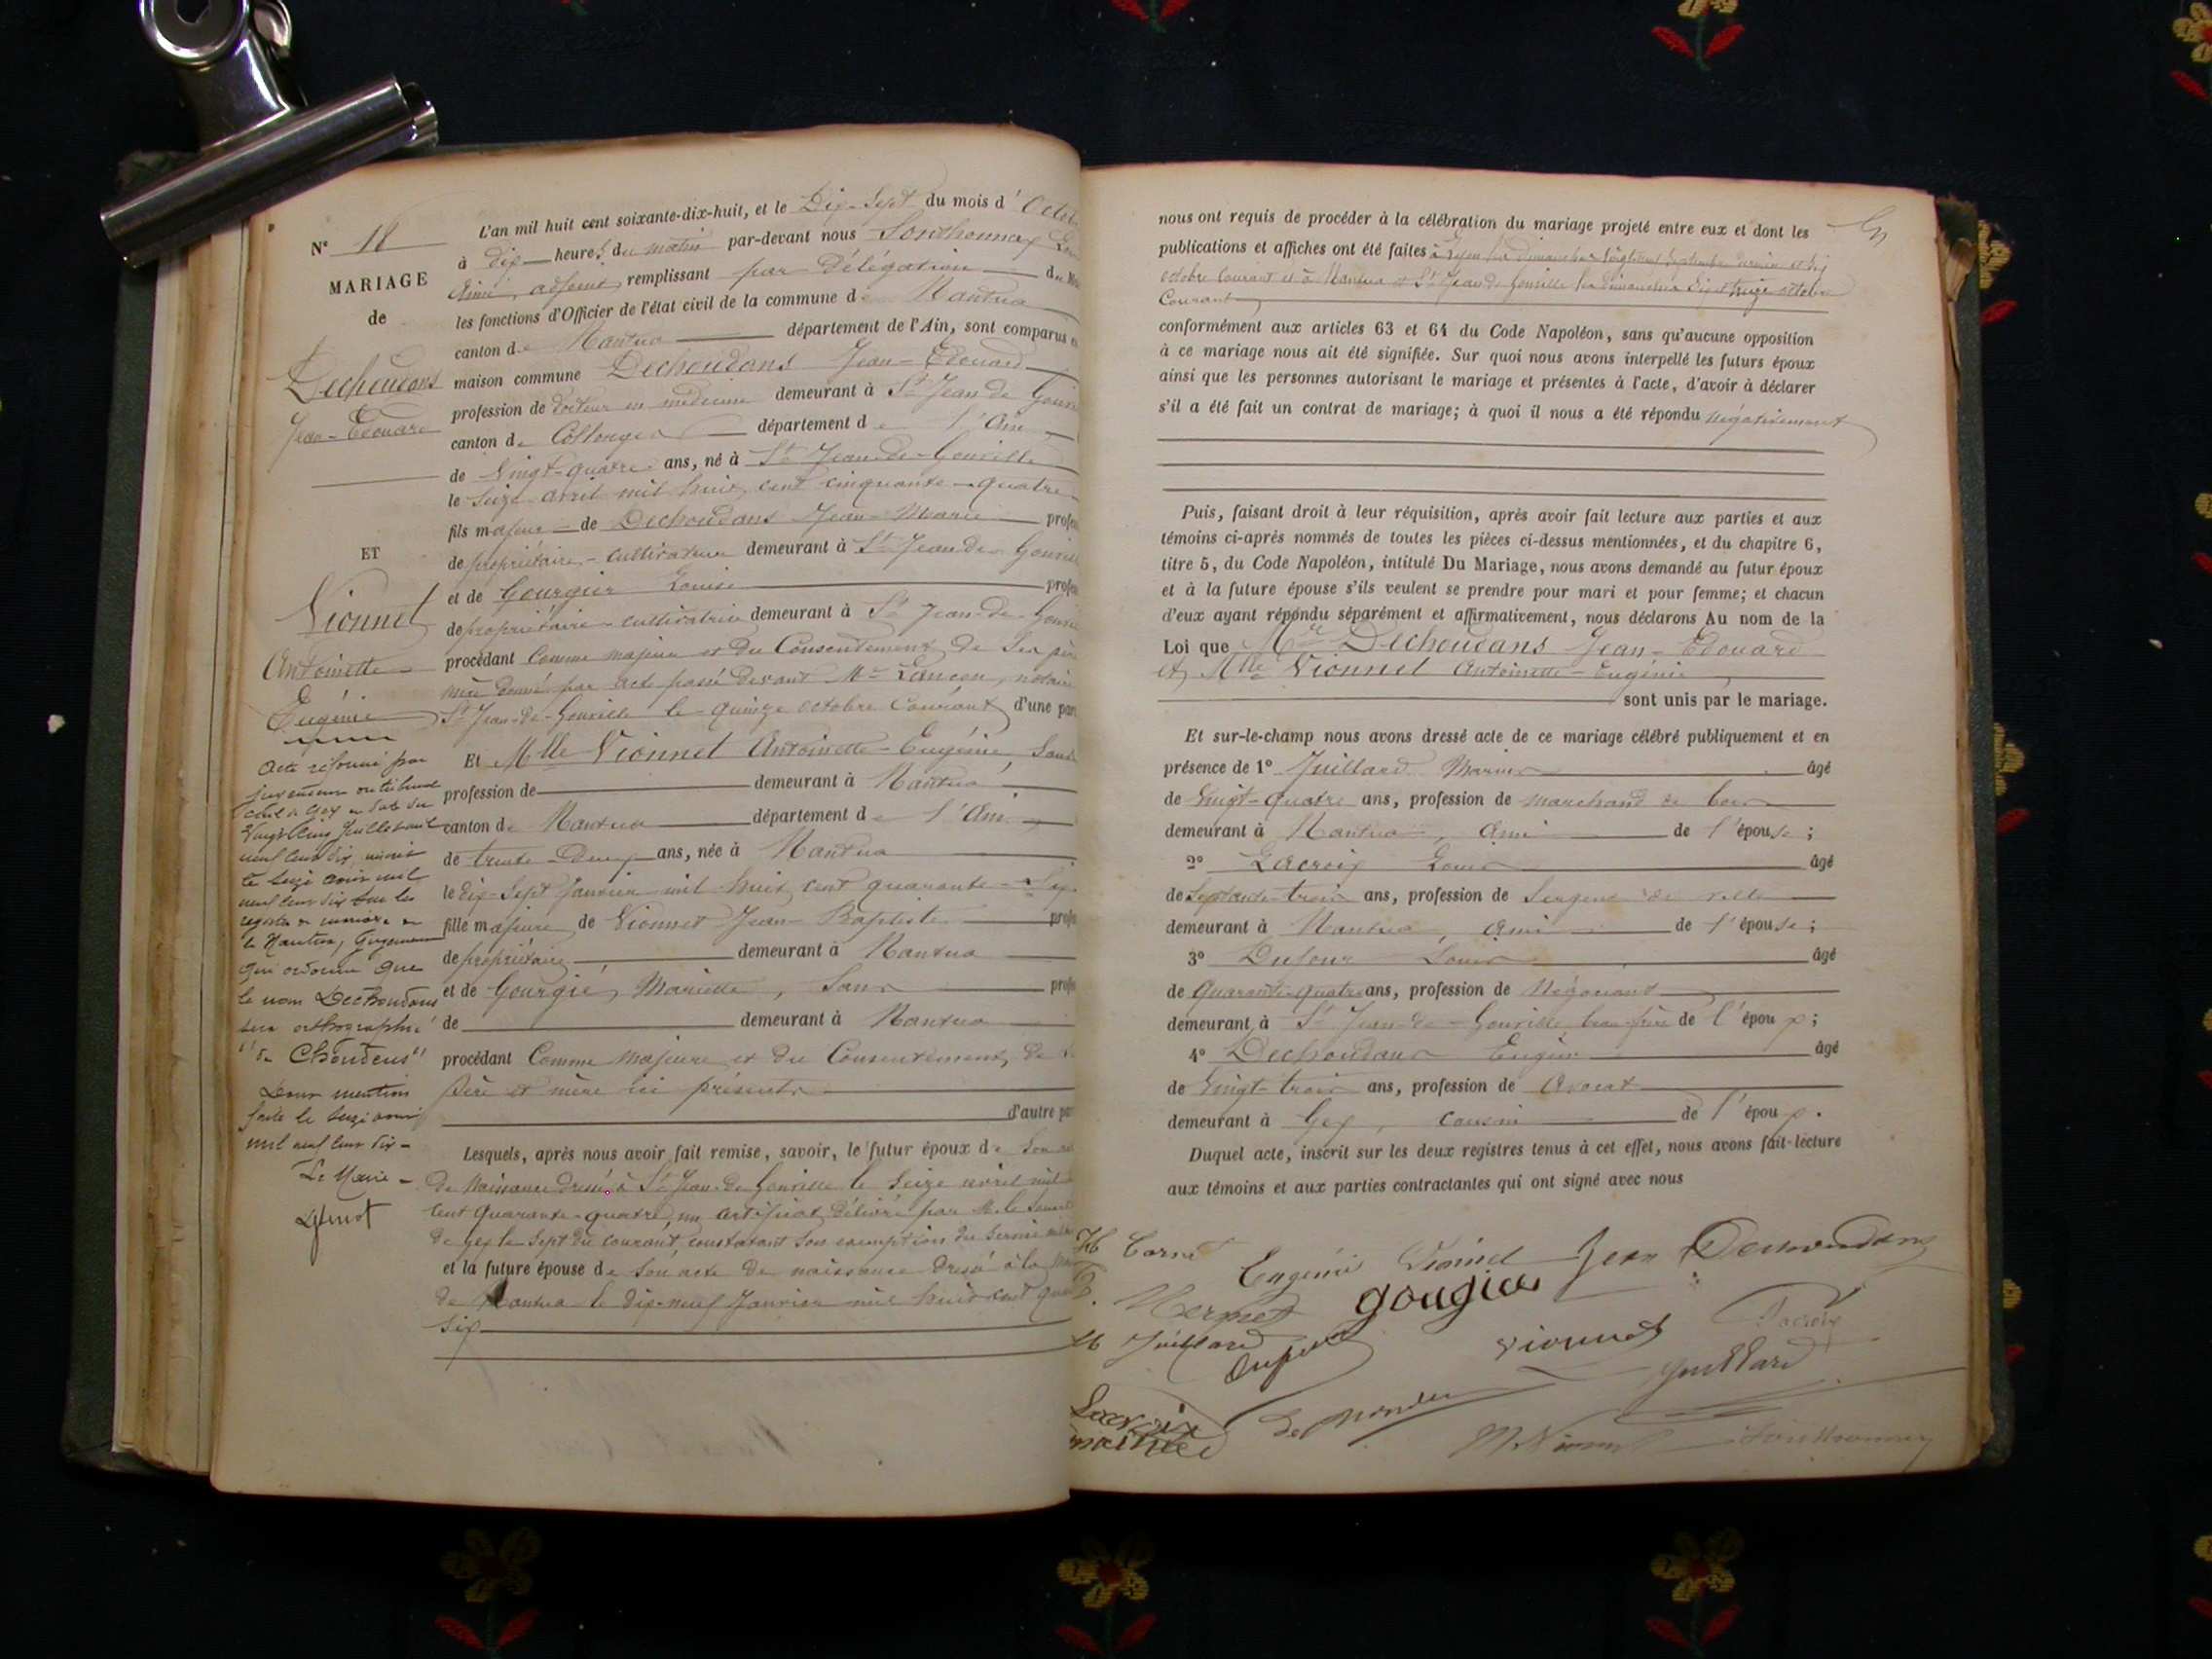 N° 18
MARIAGE
de
Dechoudans
Jean-Edouard
ET
Vionnet
Antoinette
Eugénie
Acte réformé par
jugement du tribunal
civil de Gex en date du
vingt cinq Juillet mil
neuf cent dix,
le seize
neuf cent dix sur les
registres de
de Nantua, Jugement
qui ordonne que
le nom Dechoudans
sera orthographié
"de Choudens"
Pour mention
faite le seize
mil neuf cent dix -
Le Maire -
L'an mil huit cent soixante-dix-huit, et le Dix-Sept du mois d'
à dix heures du matin par-devant nous Sonthonnax
Aimé, adjoint, remplissant par Délégation du
les fonctions d'Officier de l'état civil de la commune de Nantua
canton de Nantua département de l'Ain, sont comparus
maison commune Dechoudans Jean-Edouard
profession de docteur en médecine demeurant à St Jean de
canton de Collonges département de l'Ain
de Vingt-quatre ans, né à St Jean-de-Gonville
le Seize avril mil huit cent cinquante-quatre
fils majeur de Dechoudans Jean-Marie
de propriétaire-cultivateur demeurant à St Jean-de-
et de Gourgier Louise
de propriétaire-cultivatrice demeurant à St Jean-de-
procédant Comme majeur et du Consentement de ses père
mère donné par acte passé devant Me Lançon, notaire
St Jean-de-Gonville le quinze octobre Courant d'une
Et Mlle Vionnet Antoinette-Eugénie, Sans
profession de demeurant à Nantua
canton de Nantua département de l'Ain
de trente-Deux ans, née à Nantua
le Dix-Sept Janvier mil huit cent quarante-
fille majeure de Vionnet Jean-Baptiste
de propriétaire demeurant à Nantua
et de Gourgié, Mariette, Sans
de demeurant à Nantua
procédant Comme majeure et du Consentement, de
père et mère ici présents
d'autre
Lesquels, après nous avoir fait remise, savoir, le futur époux de son
de Naissance dressé à St Jean-de-Gonville le Seize avril mil
cent quarante-quatre, un certificat délivré par M. le
de Gex le Sept du courant, constatant son exemption du service
et la future épouse de son acte de naissance dressé à la
de Nantua le dix-neuf Janvier mil huit cent
six
nous ont requis de procéder à la célébration du mariage projeté entre eux et dont les
publications et affiches ont été faites à Lyon les dimanches vingt Septembre dernier et six
octobre Courant et à Nantua et St Jean de Gonville les dimanches Six et treize octobre
Courant
conformément aux articles 63 et 64 du Code Napoléon, sans qu'aucune opposition
à ce mariage nous ait été signifiée. Sur quoi nous avons interpellé les futurs époux
ainsi que les personnes autorisant le mariage et présentes à l'acte, d'avoir à déclarer
s'il a été fait un contrat de mariage; à quoi il nous a été répondu négativement
Puis, faisant droit à leur réquisition, après avoir fait lecture aux parties et aux
témoins ci-après nommés de toutes les pièces ci-dessus mentionnées, et du chapitre 6,
titre 5, du Code Napoléon, intitulé Du Mariage, nous avons demandé au futur époux
et à la future épouse s'ils veulent se prendre pour mari et pour femme; et chacun
d'eux ayant répondu séparément et affirmativement, nous déclarons Au nom de la
Loi que Mr Dechoudans Jean-Edouard
et Mlle Vionnet Antoinette-Eugénie
sont unis par le mariage.
Et sur-le-champ nous avons dressé acte de ce mariage célébré publiquement et en
présence de 1° Juillard Marius âgé
de Vingt-quatre ans, profession de marchand de bois
demeurant à Nantua, ami de l'épouse;
2° Lacroix Louis âgé
de Septante-trois ans, profession de Sergent de ville
demeurant à Nantua, ami de l'épouse;
3° Dufour Louis âgé
de Quarante-quatre ans, profession de Négociant
demeurant à St Jean-de-Gonville, beau frère de l'époux;
4° Dechoudans Eugène âgé
de Vingt-trois ans, profession de Avocat
demeurant à Gex, cousin de l'époux.
Duquel acte, inscrit sur les deux registres tenus à cet effet, nous avons fait lecture
aux témoins et aux parties contractantes qui ont signé avec nous
Eugénie Vionnet Jean Dechoudans
gougie
Juillard
Vionnet
Lacroix
Juillard
Lacroix
M Vionnet
Sonthonnax